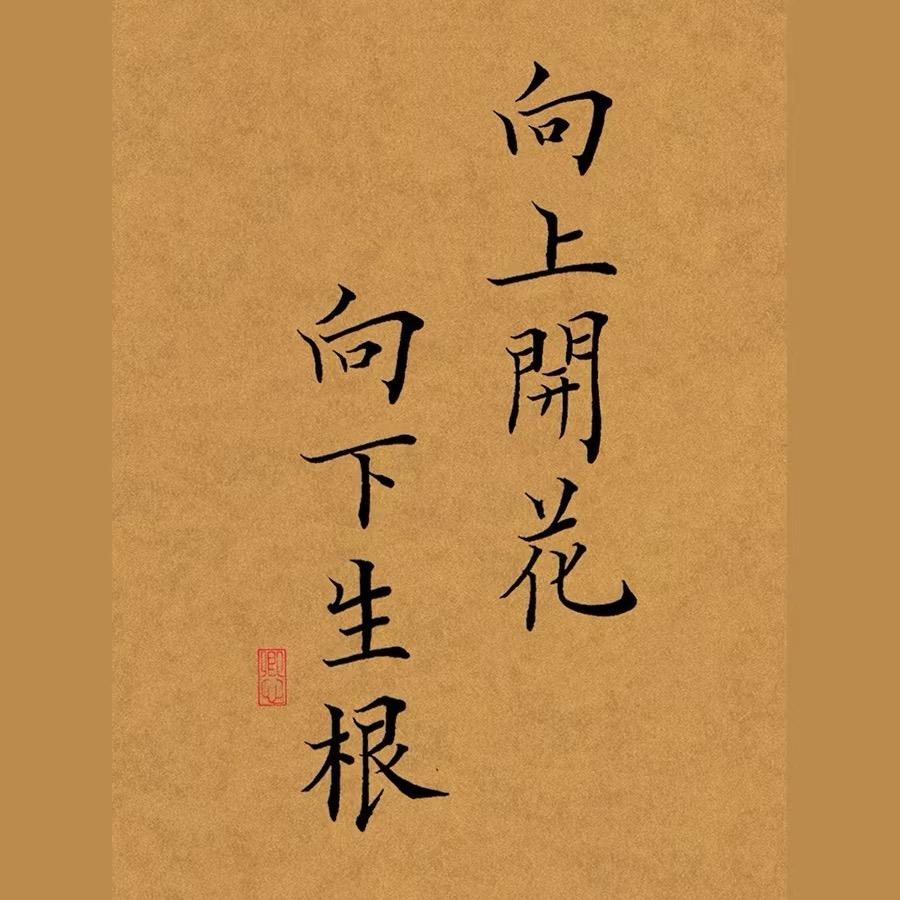 向上開花
向下生根